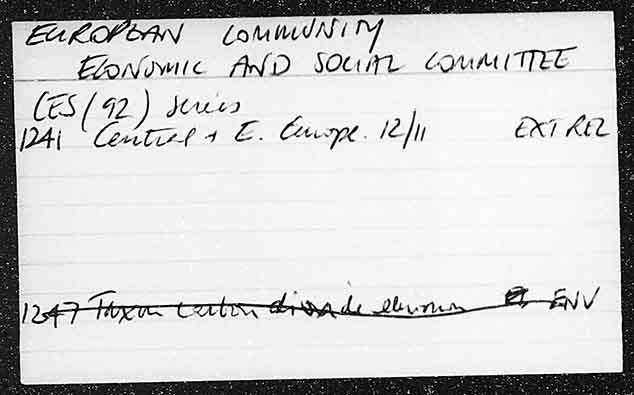 EUROPEAN COMMUNITY
ECONOMIC AND SOCIAL COMMITTEE
CES (92) series
1241 Central + E. Europe. 12/11 EXT REL
1247 Tax on carbon dioxide emission ENV